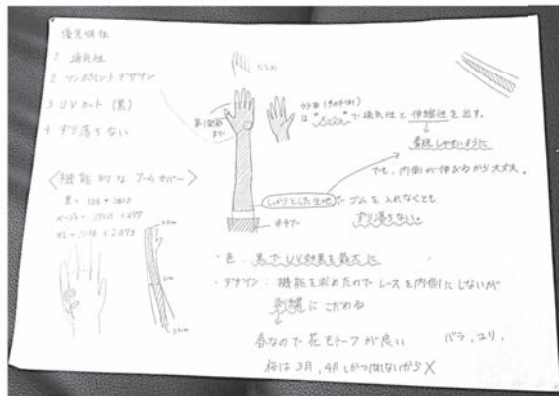 優先順位
1 通気性
2 ワンポイントデザイン
3 UVカット (黒)
4 ずり落ちない
第1関節
まで
で通気性と伸縮性を出す。
着脱しやすいように
でも、内側が伸びるから大丈夫。
しっかりとした生地で ゴムを入れなくとも
ずり落ちない。
〈機能的な アームカバー〉
・色 : 黒でUV効果を最大に
・デザイン : 機能を求めたので レースを内側にしないが
刺繍 に こだわる
春なので 花モチーフが良い バラ、ユリ、
桜は 3月、4月しかつけれないから X